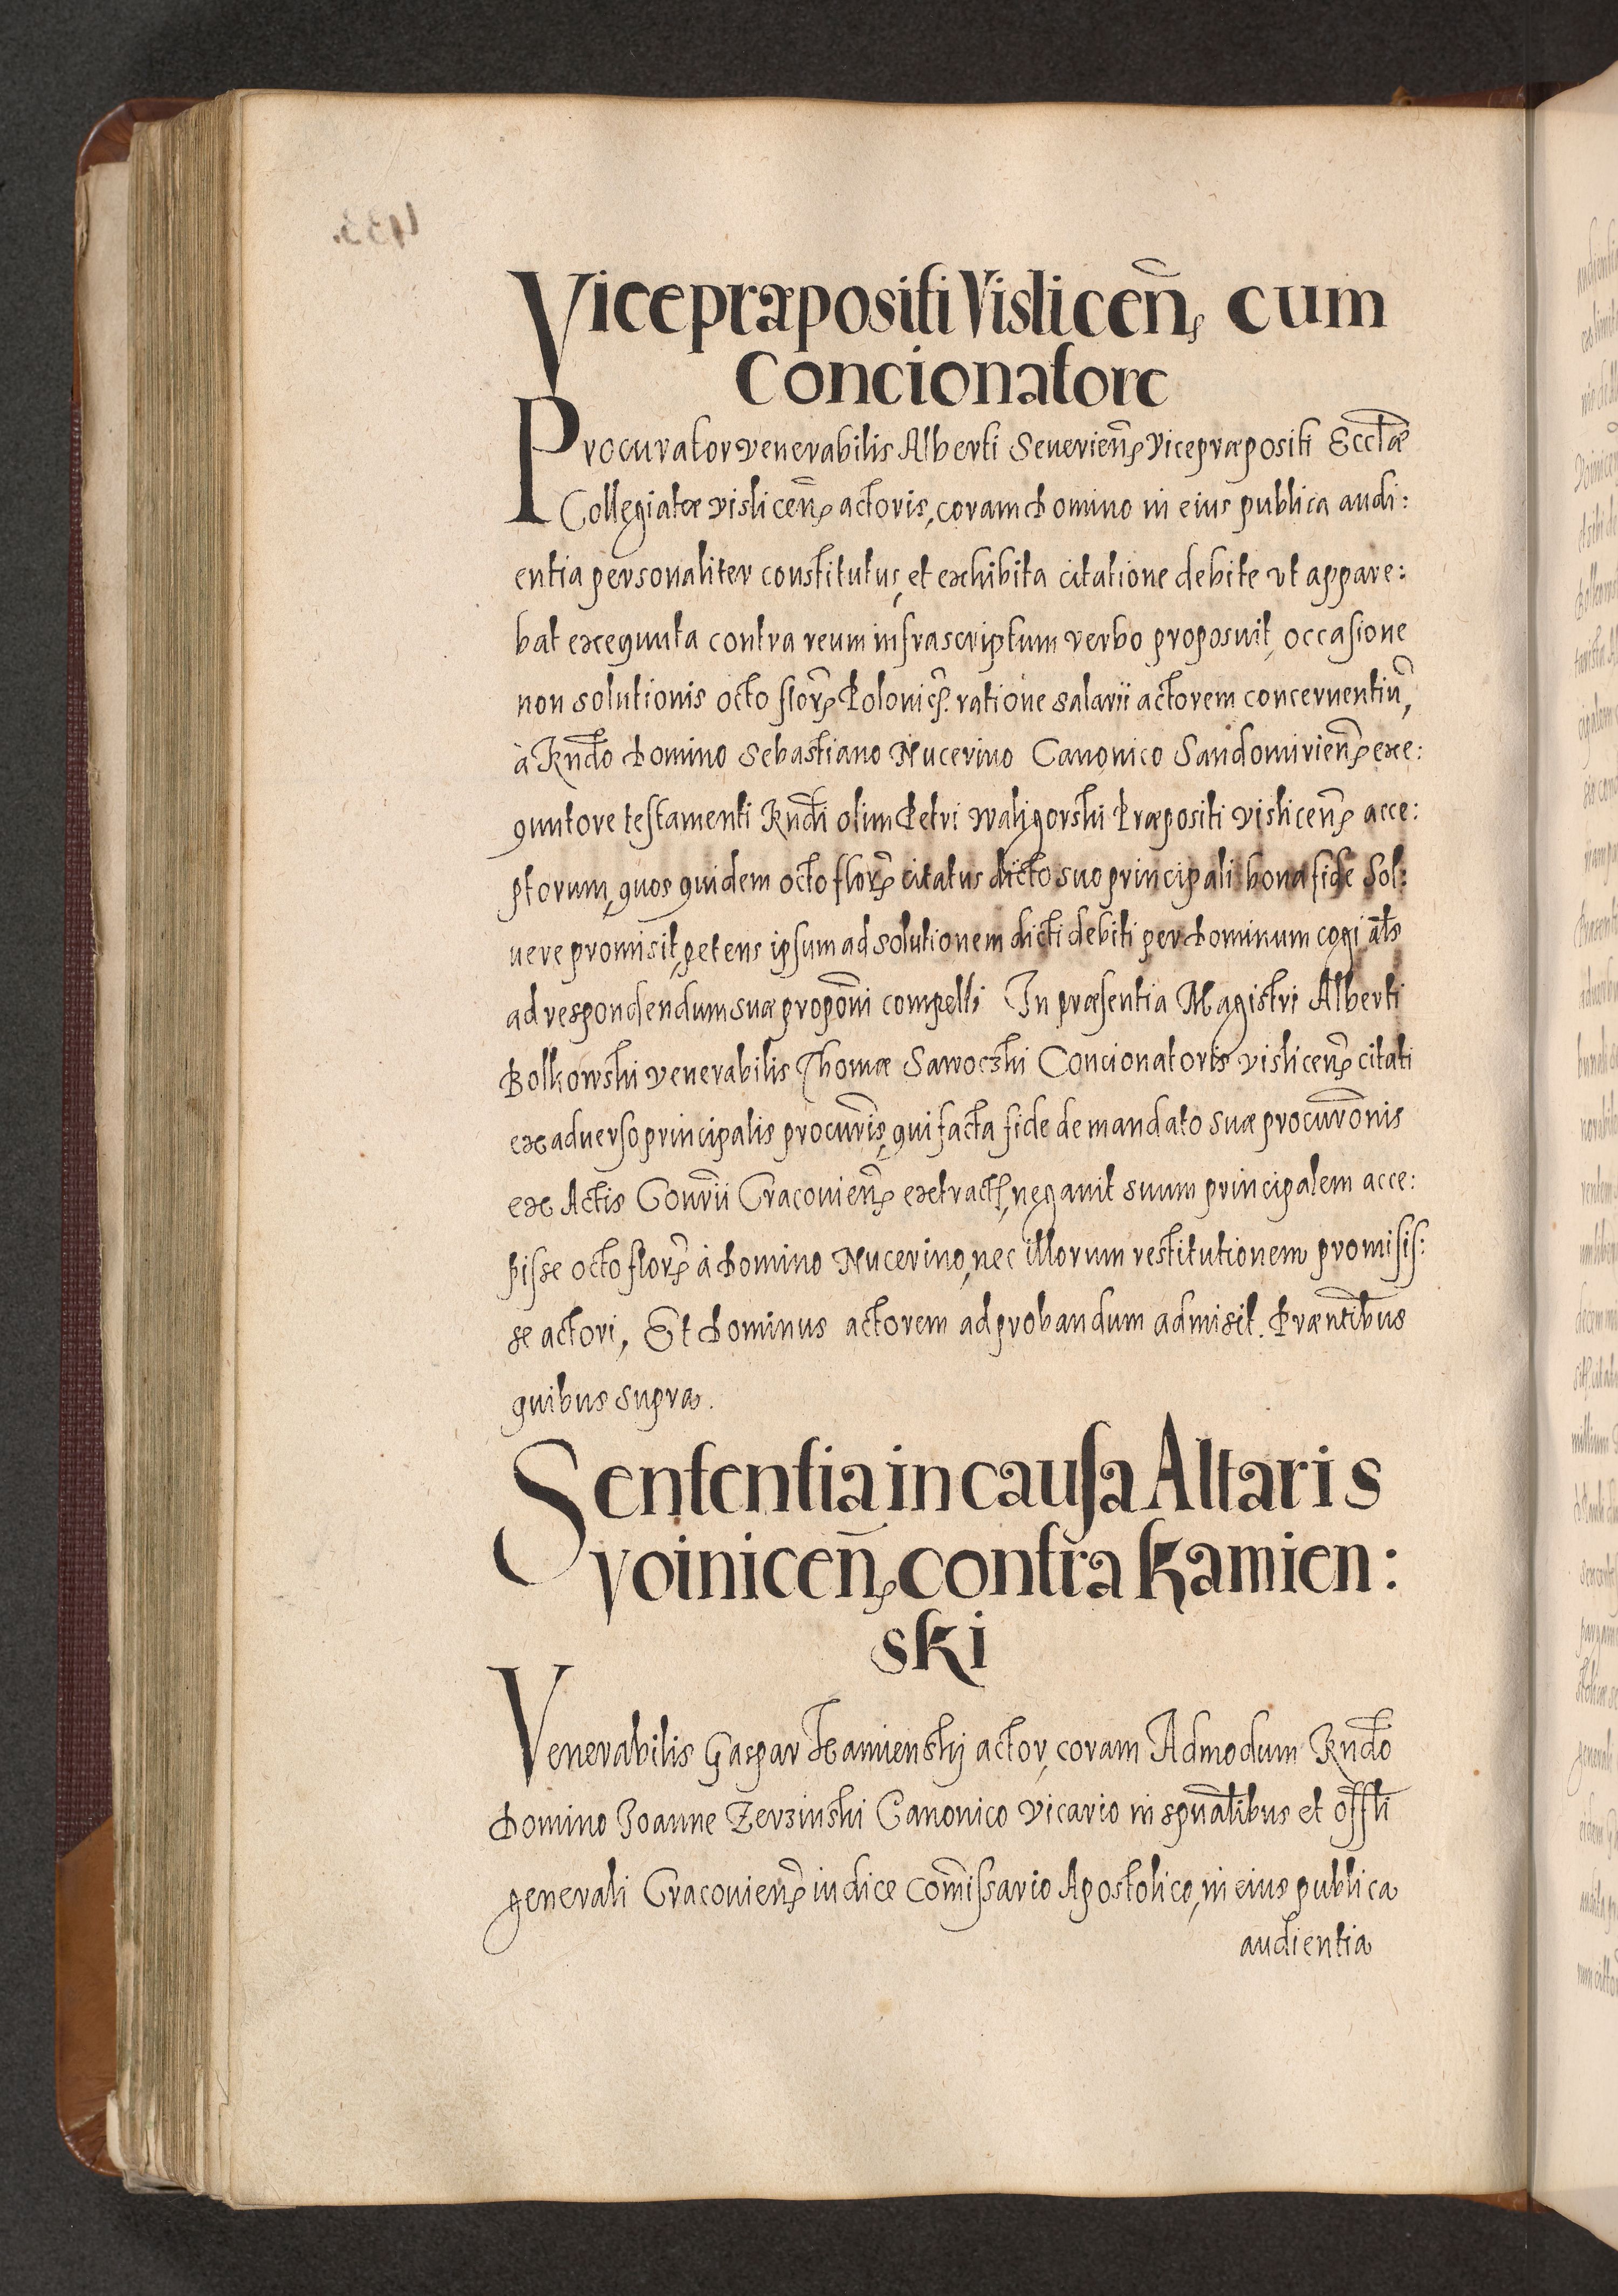 Vicepræpositi Vislicen̄, cum
Concionatore
Procurator venerabilis Alberti Seuerien̄ Vicepræpositi Eccl̄æ
Collegiatæ vislicen̄ actoris, coram Domino in eius publica audi:
entia personaliter constitutus, et exhibita citatione debite vt appare:
bat exequuta contra reum infrascriptum verbo proposuit, occasione
non solutionis octo flor̄ Polonic̄. ratione salarii actorem concernentiū,
à Rn̄do Domino Sebastiano Nucerino Canonico Sandomirien̄ exe:
quutore testamenti Rn̄di olim Petri Waligorski Præpositi vislicen̄ acce:
ptorum, quos quidem octo flor̄ citatus dicto suo principali bona fide sol:
uere promisit, petens ipsum ad solutionem dicti debiti per Dominum cogi al̄s
ad respondendum suæ propōni compelli In præsentia Magistri Alberti
Bolkowski venerabilis Thomæ Sawoczki Concionatoris vislicen̄ citati
ex aduerso principalis procur̄is, qui facta fide de mandato suæ procurōnis
ex Actis Cour̄ii Cracouien̄ extract, negauit suum principalem acce:
pisse octo flor̄ à Domino Nucerino, nec illorum restitutionem promisis:
se actori, Et Dominus actorem ad probandum admisit. Præn̄tibus
quibus supra.
Sententia in causa Altaris
Voinicen̄, contra Kamien:
ski
Venerabilis Gaspar Kamienskj actor, coram Admodum Rn̄do
Domino Joanne Zerzinski Canonico Vicario in spūalibus et offl̄i
generali Cracouien̄ iudice com̄issario Apostolico, in eius publica
audientia